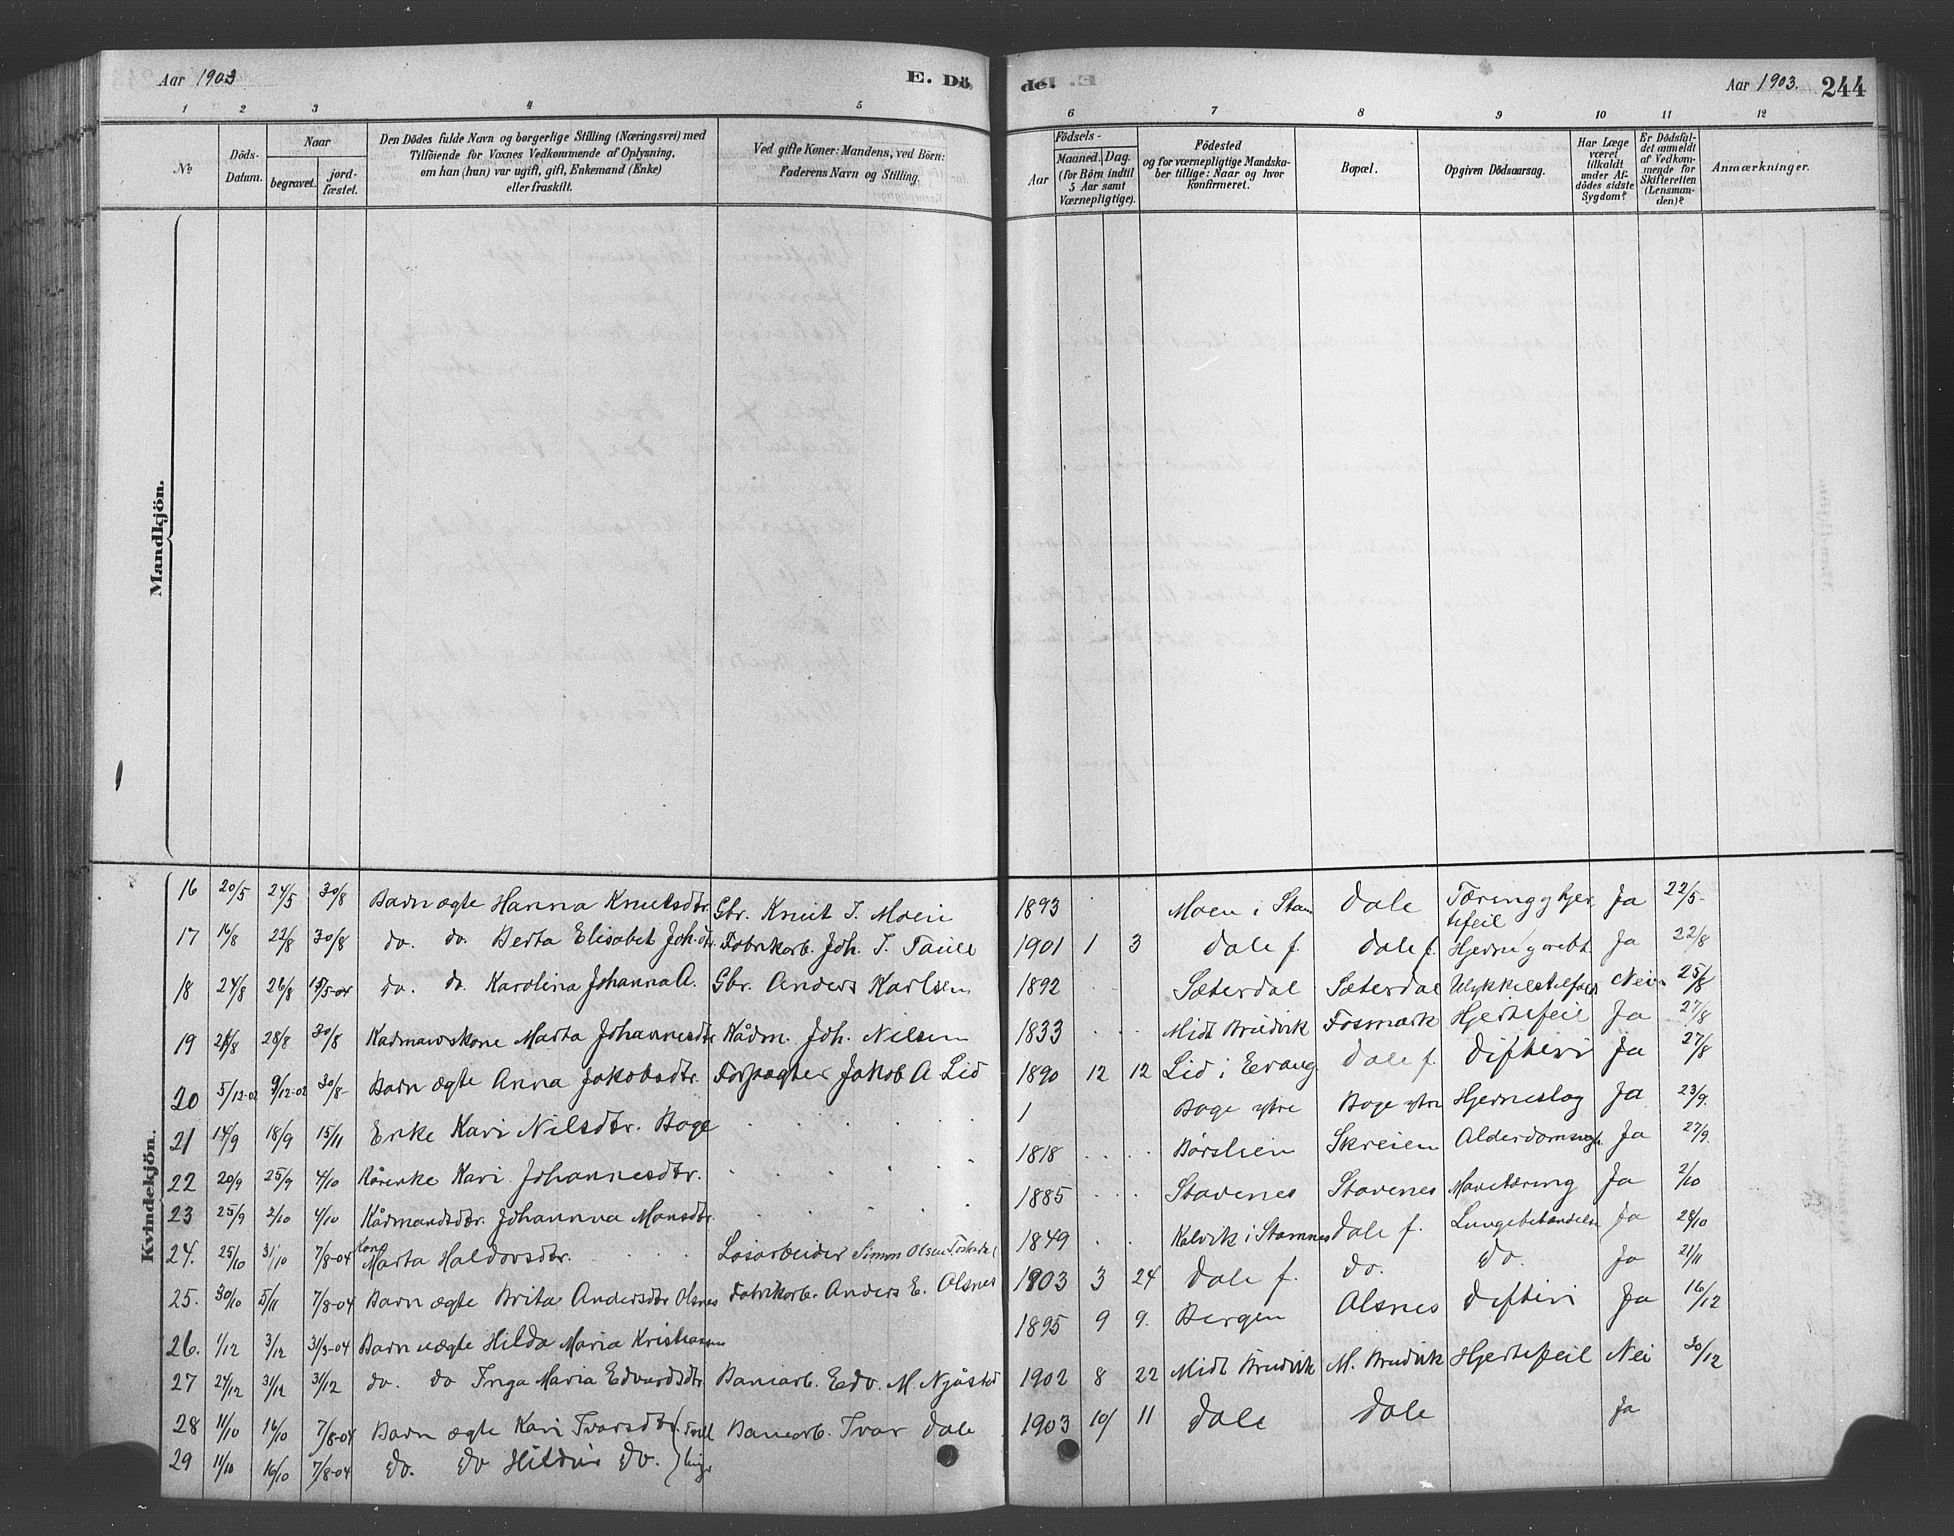 Aar 1903
E. Dö
de.
Aar 1903.
244
1 2 3 4 5 6 7 8 9 10 11 12
№
Döds-Datum.
Naar
begravet.
jord-fæstet.
Den Dödes fulde Navn og borgerlige Stilling (Næringsvei) med
Tilföiende for Voxnes Vedkommende af Oplysning,
om han (hun) var ugift, gift, Enkemand (Enke)
eller fraskilt.
Ved gifte Koner: Mandens, ved Börn:
Faderens Navn og Stilling.
Födsels-
Aar
Maaned. Dag.
(for Börn indtil
5 Aar samt
Værnepligtige).
Födested
og for værnepligtige Mandska-
ber tillige: Naar og hvor
konfirmeret.
Bopæl.
Opgiven Dödsaarsag.
Har Læge
været
tilkaldt
under Af-
dödes sidste
Sygdom?
Er Dödsfal-
det anmeldt
af Vedkom-
mende for
Skifteretten
(Lensman-
den)?
Anmærkninger.
Mandkjön.
Kvindekjön.
16 20/5 24/5 30/8 Barn ægte Hanna Knutsdtr. Gbr. Knut J. Moen 1893 Moen i Stam Dale Tæring g hjer tefeil Ja 22/5
17 16/8 22/8 30/8 do. do. Berta Elisabet Joh.dtr. Fabrikarb. Joh. J. Taule 1901 1 3 Dale f. Dale f. Ja 22/8
18 24/8 26/8 15/5-04 do. do. Karolina Johanna A. Gbr. Anders Karlsen 1892 Sæterdal Sæterdal Ulykkestilfæld Nei 25/8
19 28/8 30/8 Kaarmandskone Marta Johannesdtr Kådm. Joh. Nilsen 1833 Midt Bruvik Fosmark Hjertefeil Ja 27/8
20 5/12-02 9/12-02 30/8 Barn ægte Anna Jakobsdtr. Forpagter Jakob A Lid 1890 12 12 Lid i Evang Dale f. Difteri Ja 27/8
21 14/9 18/9 15/11 Enke Kari Nilsdtr. Boge 1 Boge ytre Boge ytre Hjerneslag Ja 23/9.
22 20/9 25/9 4/10 Kårenke Kari Johannesdtr. 1818 Børslien Skreien Alderdomssvagh. Ja 27/9.
23 25/9 2/10 4/10 Kådmandsdtr. Johanna Monsdtr. 1885 Stavenes Stavenes Mavetæring Ja 2/10
24. 25/10 31/10 7/8-04 Kone Marta Haldorsdtr. Løsarbeider Simon Olsen 1849 Kalvik i Stamnes Dale f. Lungebetændelse Ja 28/10
25. 30/10 5/11 7/8-04 Barn ægte Brita Andersdtr Olsnes Fabrikarb. Anders E. Olsnes 1903 3 24 Dale f. do. do. Ja 21/11
26. 1/12 3/12 31/3-04 Barn uægte Hilda Maria Kristiansen 1895 9 9. Bergen Olsnes Difteri Ja 16/12
27 24/12 31/12 31/12 do. do Inga Maria Edvardsdtr Baniarb. Edv. M. Njåstad 1902 8 22 Midt Bruvik M. Bruvik Hjertefeil Nei 30/12
28 11/10 16/10 7/8-04 Barn ægte Kari Ivarsdtr. } Tvill Baniarb. Ivar Dale 1903 10/ 11 Dale Dale Ja
29 11/10 16/10 7/8-04 do. do Hildur do. } inger